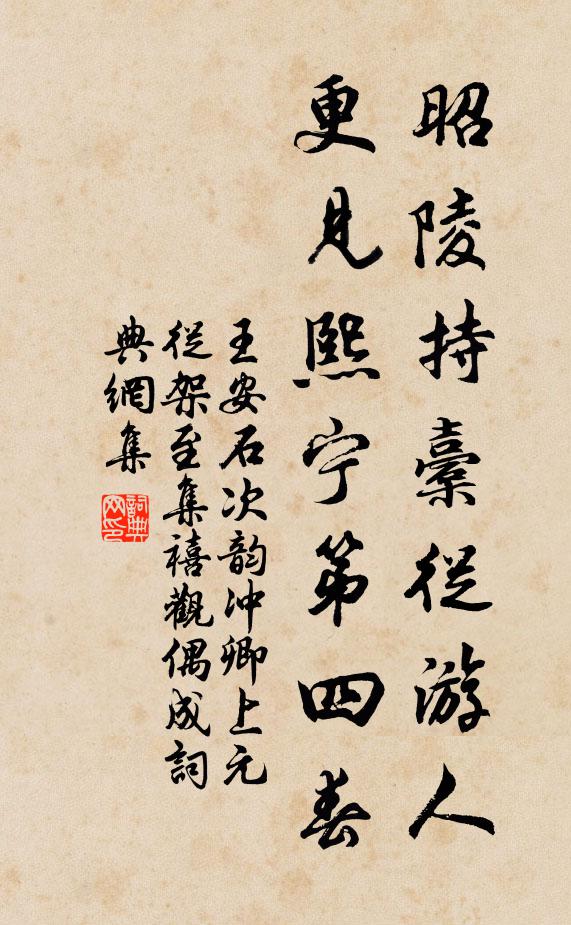 昭陵持橐從游人
更見熙宁第四春
王安石次韵冲卿上元
從架至集禧觀偶成詞
典網集
詞典网印